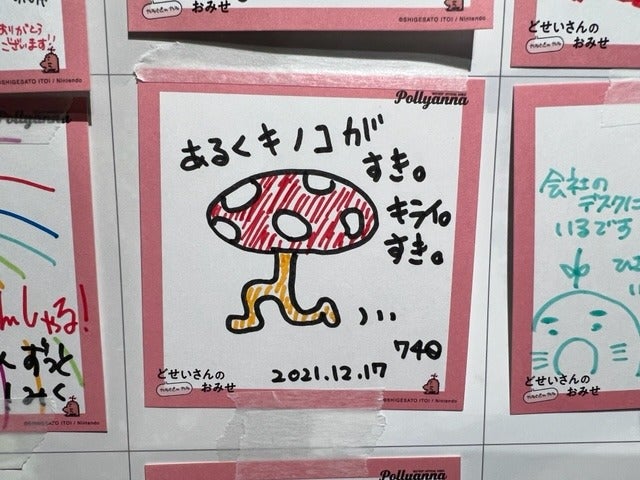 ありがとう
ございます!!
SHIGESATO ITOI / Nintendo
©SHIGESATO ITOI / Nintendo
どせいさんの
おみせ
Pollyanna
あるくキノコが
すき。
キライ。
すき。
740
2021.12.17
どせいさんの
おみせ
SHIGESATO ITOI / Nintendo
しゃる!
ずっと
©SHIGESATO ITOI / Nintendo
会社の
デスクに
いるです
どせいさんの
おみせ
Pollyanna